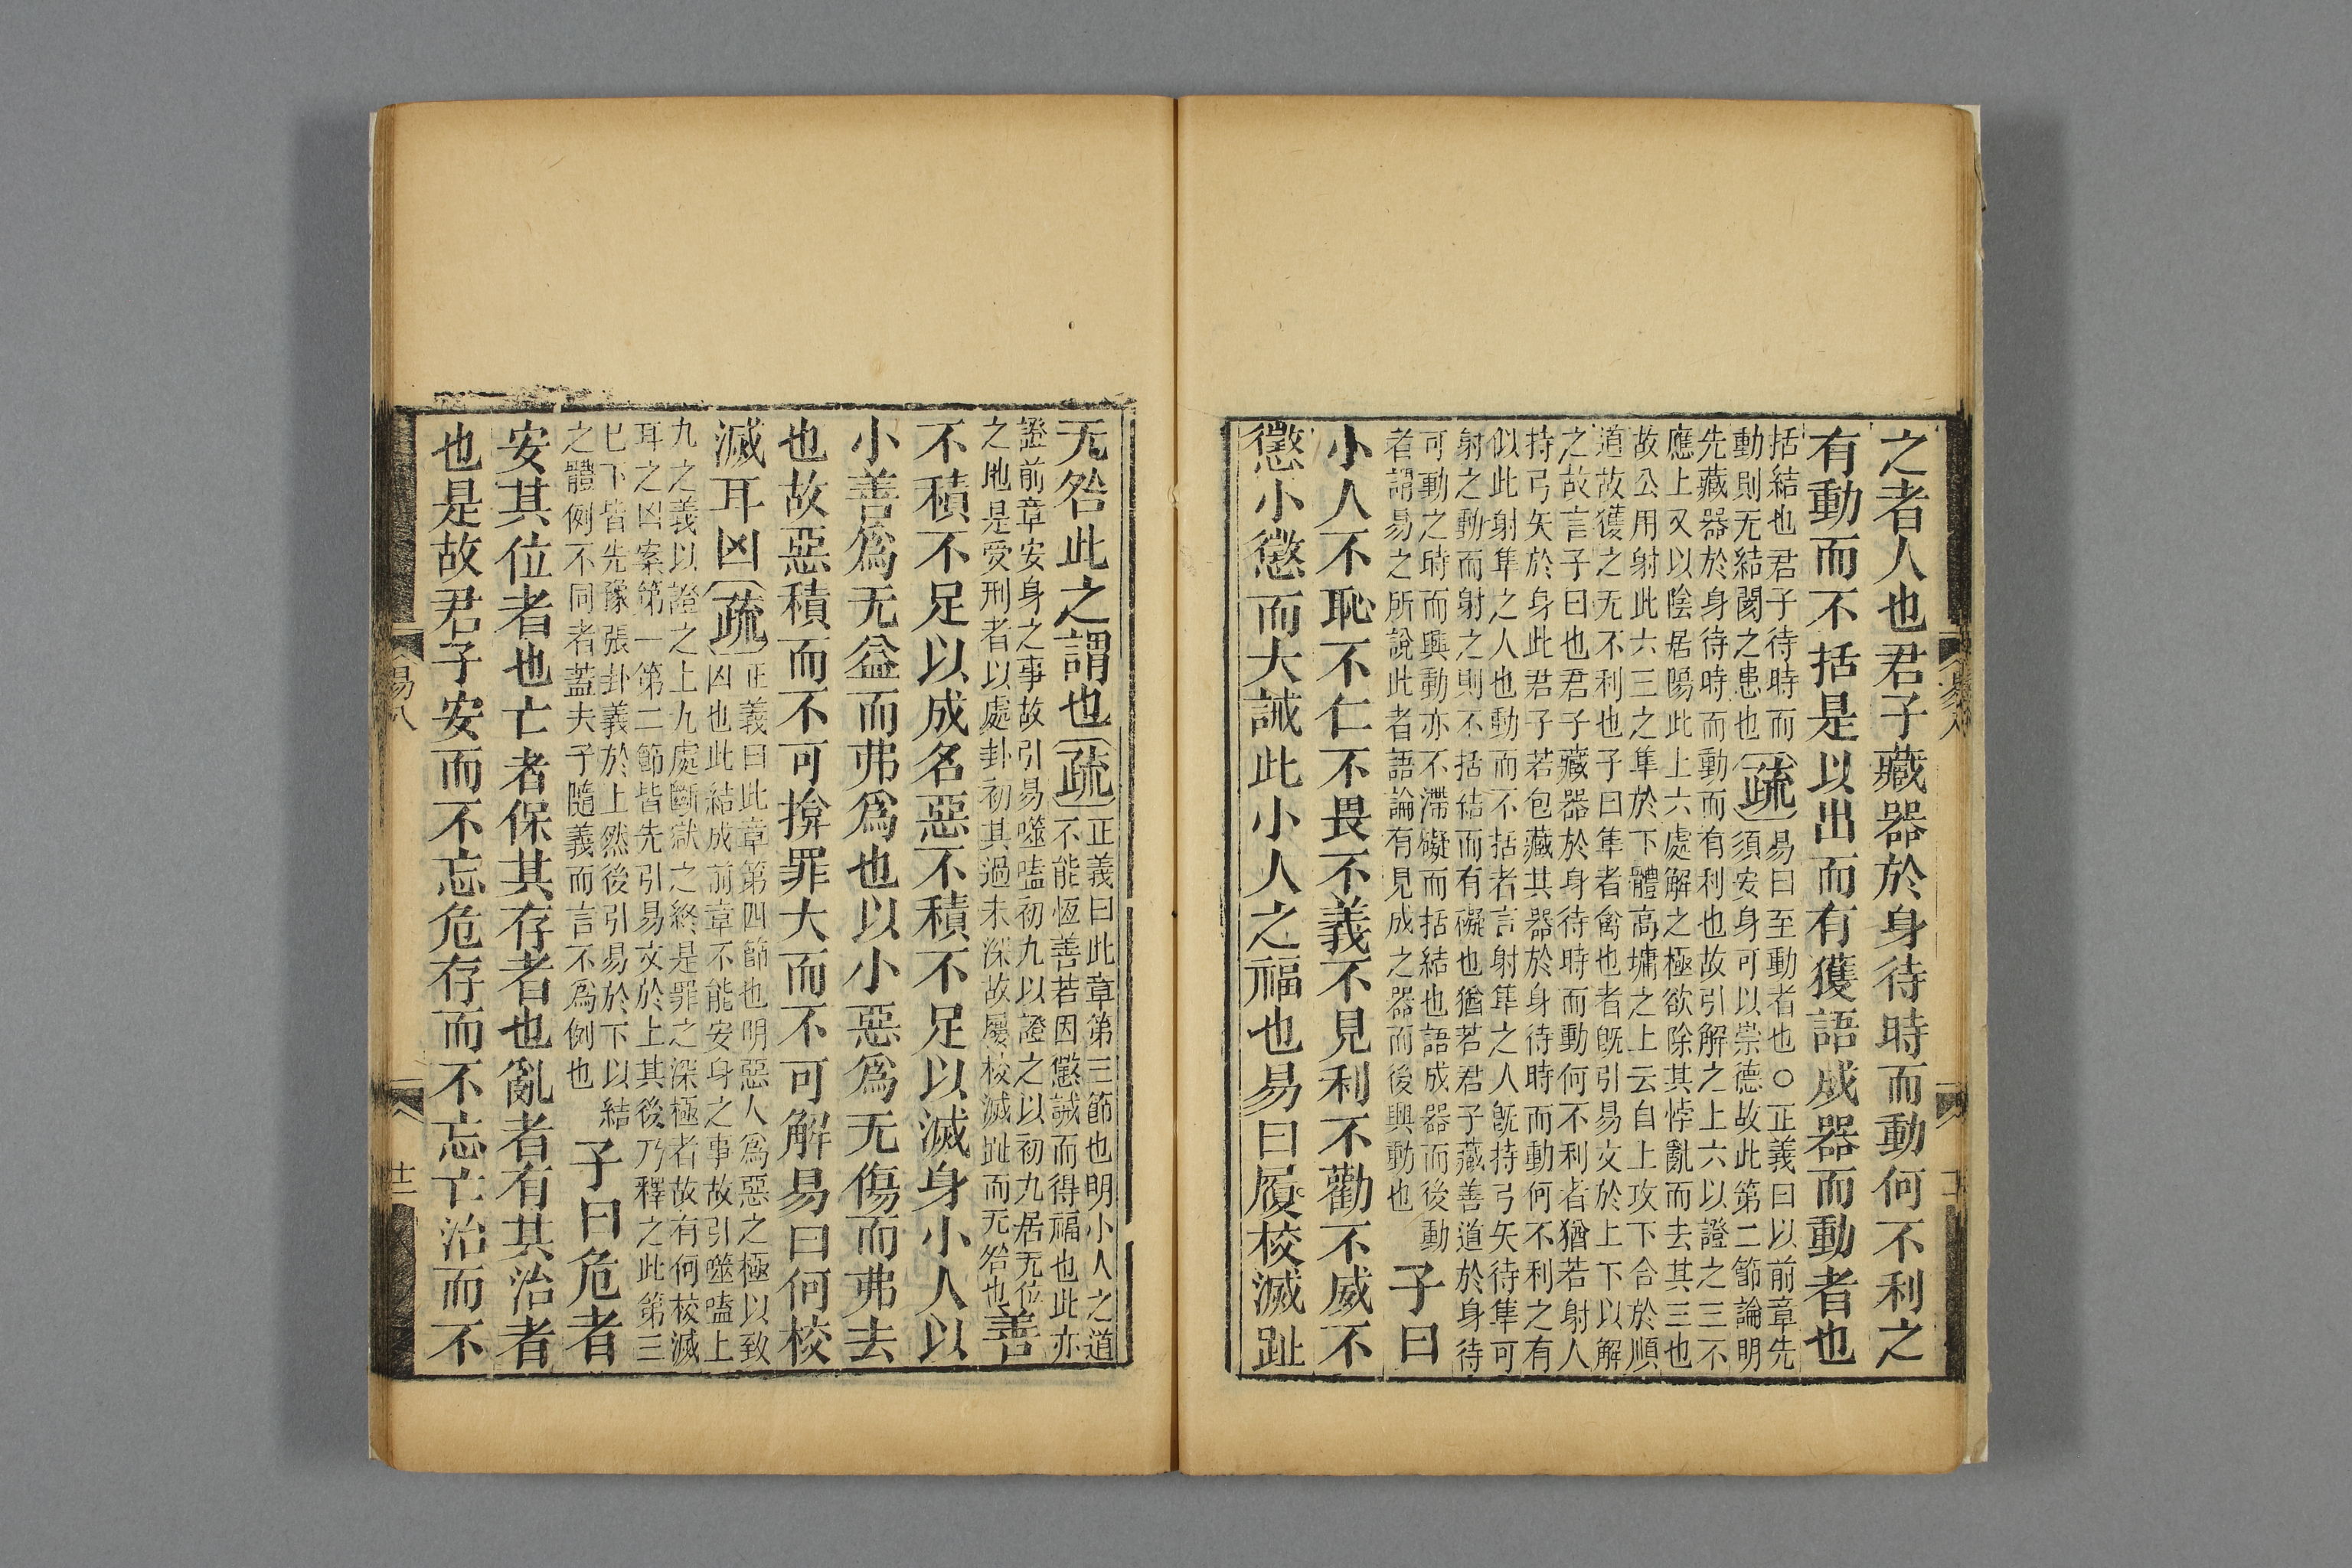 之者人也君子藏器於身待時而動何不利之
有動而不括是以出而有獲語成器而動者也
括結也君子待時而
動則无結閡之患也
疏
易曰至動者也○正義曰以前章先
須安身可以崇德故此第二節論明
先藏器於身待時而動而有利也故引解之上六以證之三不
應上又以陰居陽此上六處解之極欲除其悖亂而去其三也
故公用射此六三之隼於下體高墉之上云自上攻下合於順
道故獲之无不利也子曰隼者禽也者旣引易文於上下以解
之故言子曰也君子藏器於身待時而動何不利者猶若射人
持弓矢於身此君子若包藏其器於身待時而動何不利之有
似此射隼之人也動而不括者言射隼之人旣持弓矢待隼可
射之動而射之則不括結而有礙也猶若君子藏善道於身待
可動之時而興動亦不滯礙而括結也語成器而後動
者謂易之所說此者語論有見成之器而後興動也
子曰
小人不恥不仁不畏不義不見利不勸不威不
懲小懲而大誡此小人之福也易曰屨校滅趾
易八
无咎此之謂也
疏
正義曰此章第三節也明小人之道
不能恆善若因懲誡而得福也此亦
證前章安身之事故引易噬嗑初九以證之以初九居无位
之地是受刑者以處卦初其過未深故屨校滅趾而无咎也
善
不積不足以成名惡不積不足以滅身小人以
小善爲无益而弗爲也以小惡爲无傷而弗去
也故惡積而不可揜罪大而不可解易曰何校
滅耳凶
疏
正義曰此章第四節也明惡人爲惡之極以致
凶也此結成前章不能安身之事故引噬嗑上
九之義以證之上九處斷獄之終是罪之深極者故有何校滅
耳之凶案第一第二節皆先引易文於上其後乃釋之此第三
已下皆先豫張卦義於上然後引易於下以結
之體例不同者蓋夫子隨義而言不爲例也
子曰危者
安其位者也亡者保其存者也亂者有其治者
也是故君子安而不忘危存而不忘亡治而不
易八
十二